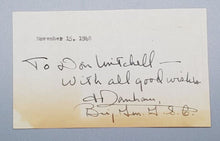 November 15, 1948
To Don Mitchell —
With all good wishes
Brig Gen U.S.A.